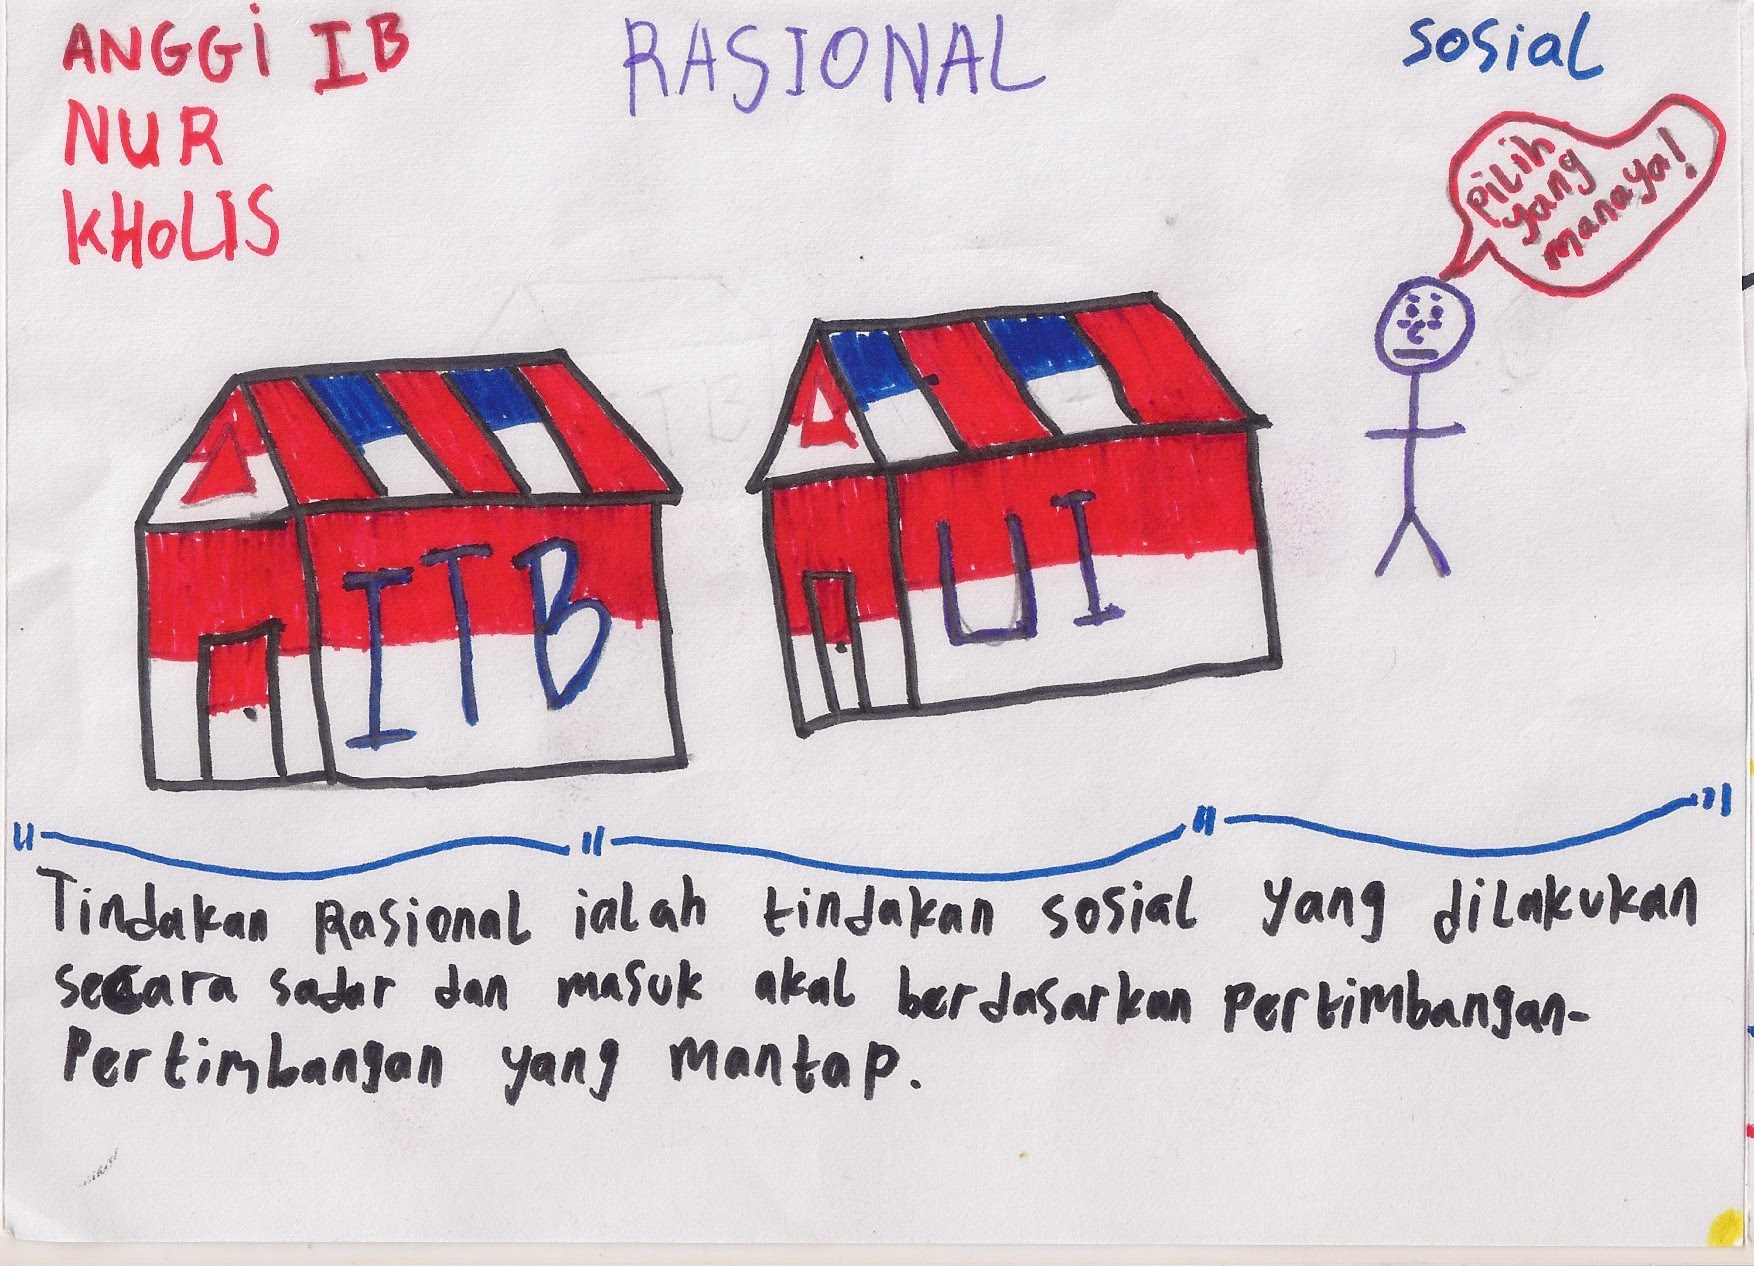 ANGGi IB
NUR
KHOLIS
RASIONAL
Sosial
PiLih
yang
manaya!
ITB
UI
Tindakan Rasional ialah tindakan sosial yang dilakukan
secara sadar dan masuk akal berdasarkan Pertimbangan-
Pertimbangan yang mantap.